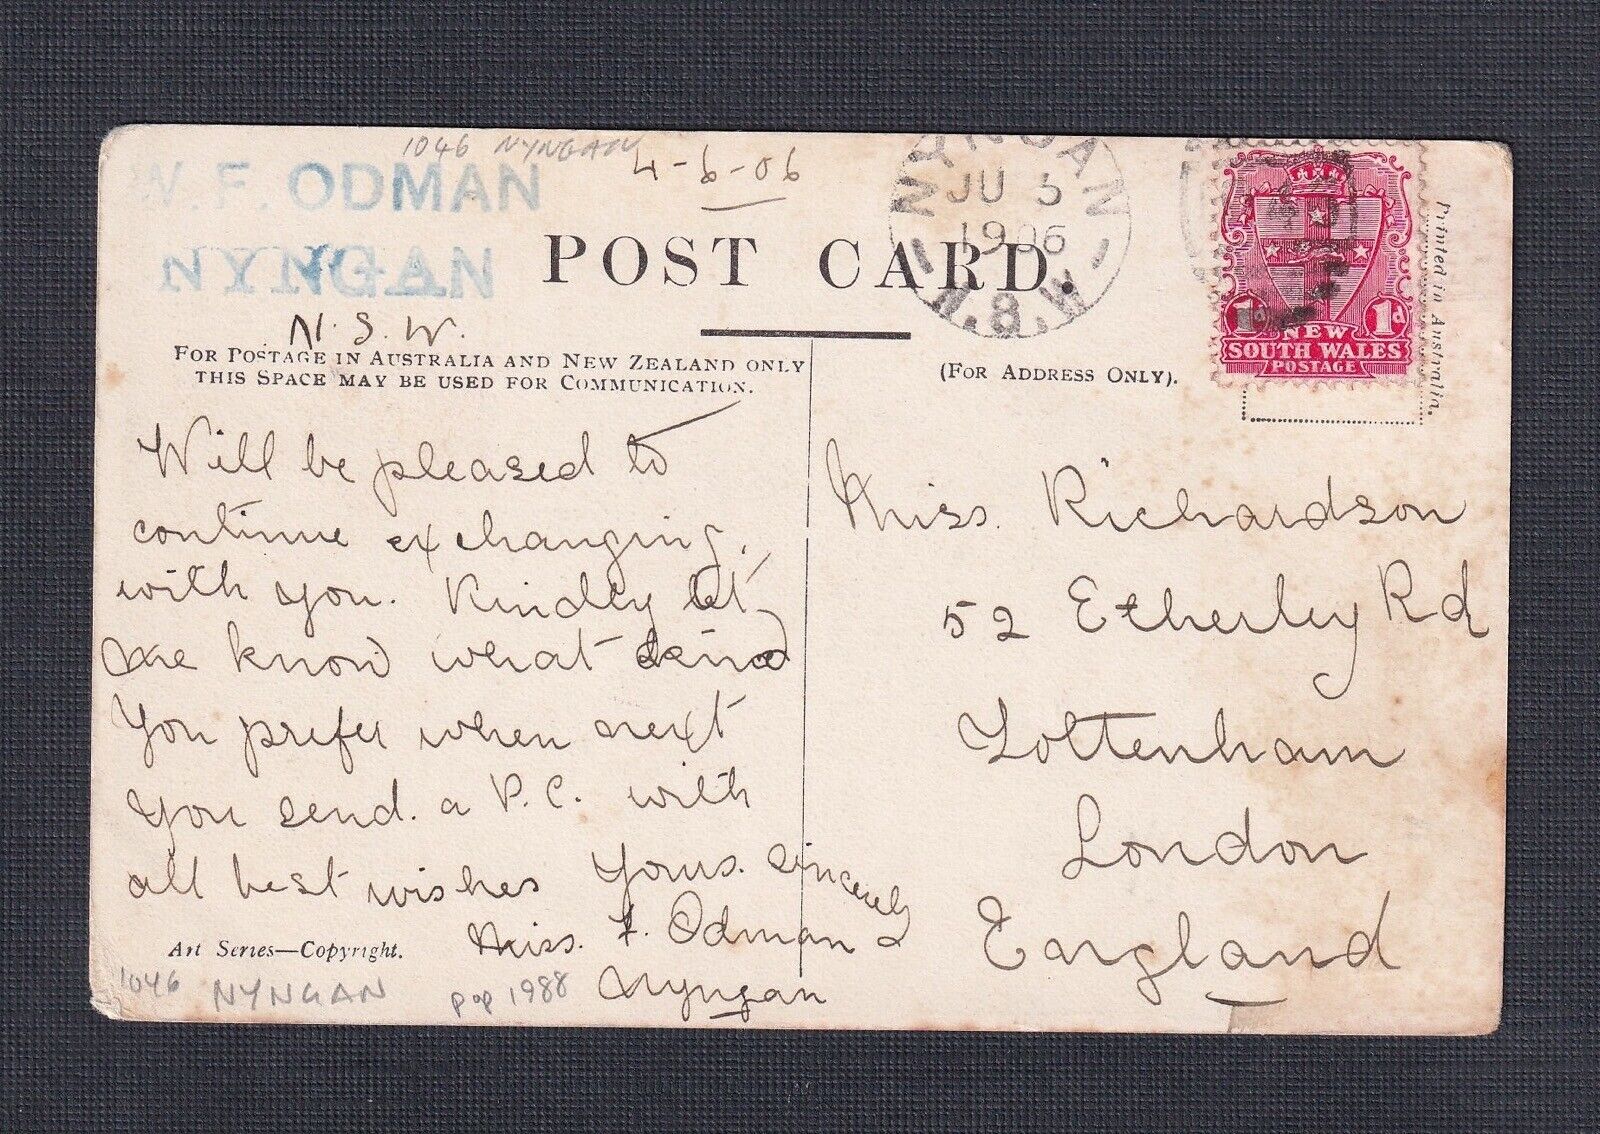 1046 NYNGAN
W. F. ODMAN
4-6-06
NYNGAN
N. S. W.
POST CARD.
NYNGAN
JU 5
1906
N.S.W
1d 1d
NEW
SOUTH WALES
POSTAGE
Printed in Australia.
FOR POSTAGE IN AUSTRALIA AND NEW ZEALAND ONLY
THIS SPACE MAY BE USED FOR COMMUNICATION.
(FOR ADDRESS ONLY).
Will be pleased to
continue exchanging.
with you. Kindley let
me know what kind
You prefer when next
you send. a P.C. with
all best wishes Yours. sincerely
Miss. Odman
Nyngan
Miss. Richardson
52 Etherley Rd
Tottenham
London
England
Art Series—Copyright.
1046 NYNGAN pop 1988